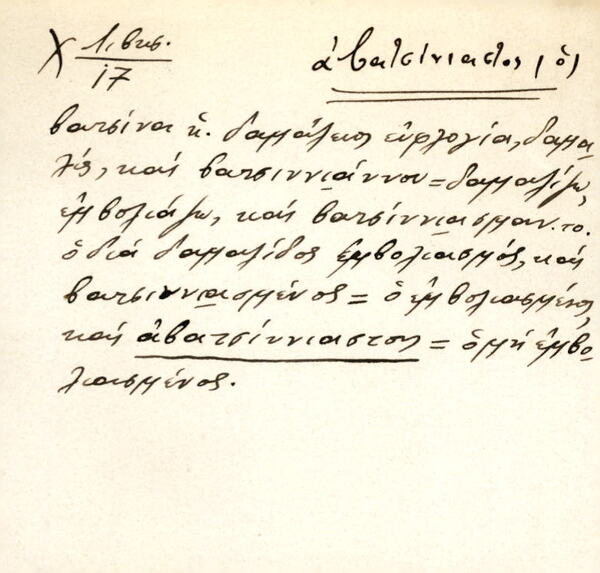 Χ Λιβισ.
17
ἀβατσίνιαστος (ὁ)
βατσίνα ἡ. δαμάλειος εὐφλογία, δαμα-
λίς, καί βατσιννιάννου = δαμαλίζω,
ἐμβολιάζω, καί βατσίννιασμαν. το.
ὁ διά δαμαλίδος ἐμβολιασμός, καί
βατσιννιασμένος = ὁ ἐμβολιασμένος,
καί ἀβατσίννιαστους = ὁ μή ἐμβο-
λιασμένος.